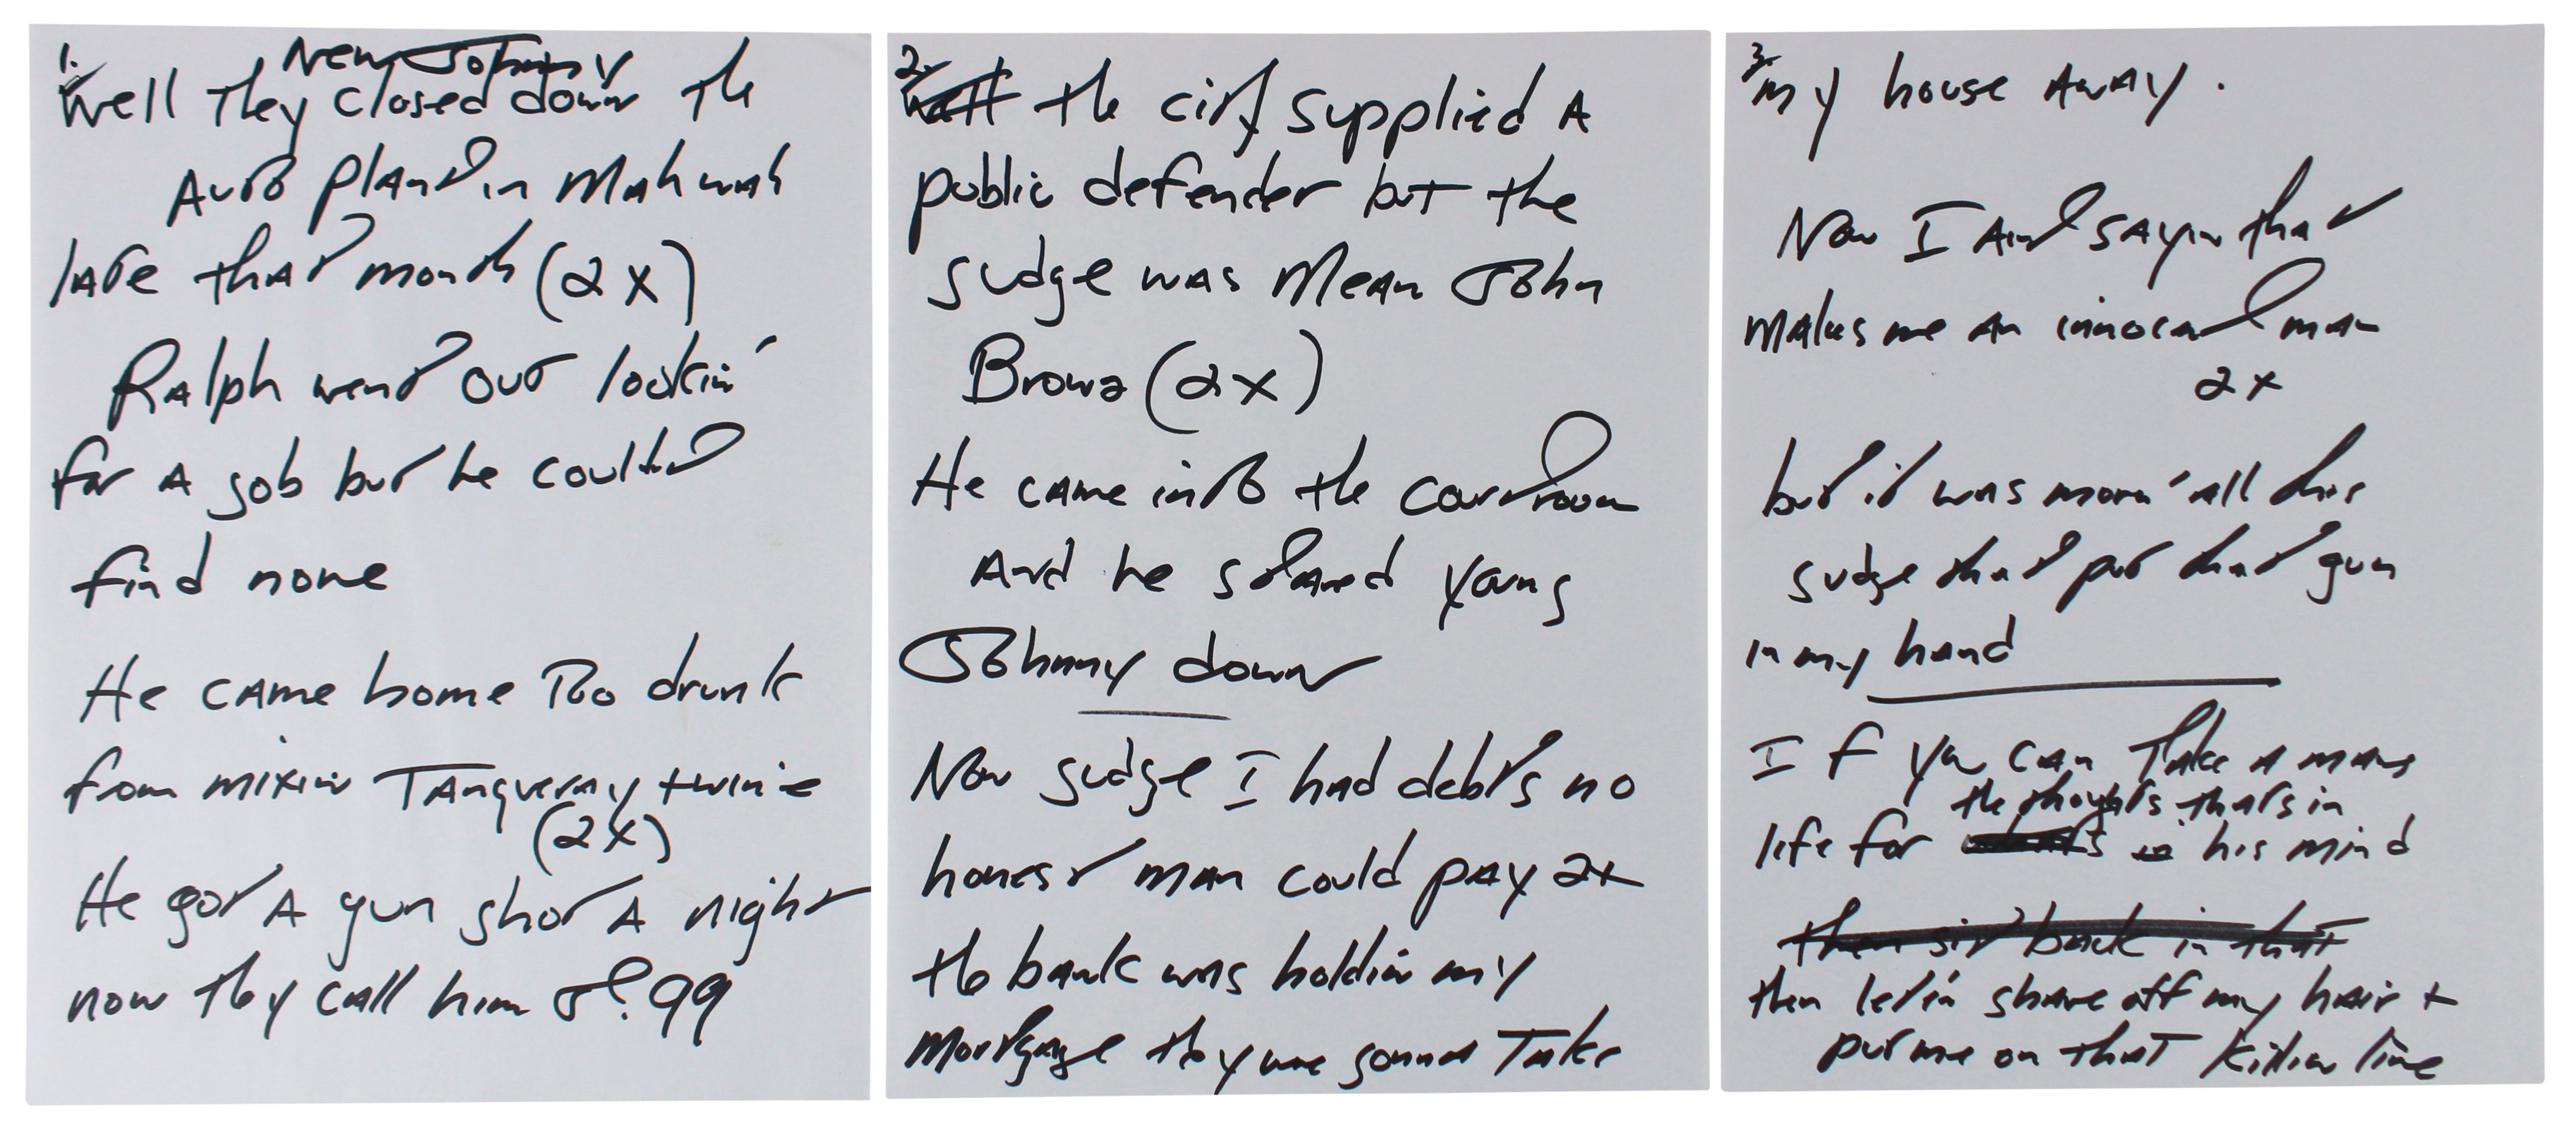 1.
New Johnny
Well they closed down the
Auto plant in Mahwah
late that month (2x)
Ralph went out lookin'
for a job but he couldnt
find none
He came home too drunk
from mixin Tanqueray + wine
(2x)
He got A gun shot A night
now they call him J. 99
2.
Well the city supplied A
public defender but the
Judge was Mean John
Brown (2x)
He came into the courtroom
And he stared young
Johnny down
Now Judge I had debts no
honest man could pay 2x
the bank was holdin my
Mortgage they was gonna Take
3.
my house AwAy.
Now I Aint sayin that
makes me an innocent man
2x
but it was more' all this
Judge that put that gun
in my hand
If you can Take A mans
the thoughts thats in
life for his mind
then sit back in that
then let'n shave off my hair +
put me on that killin line